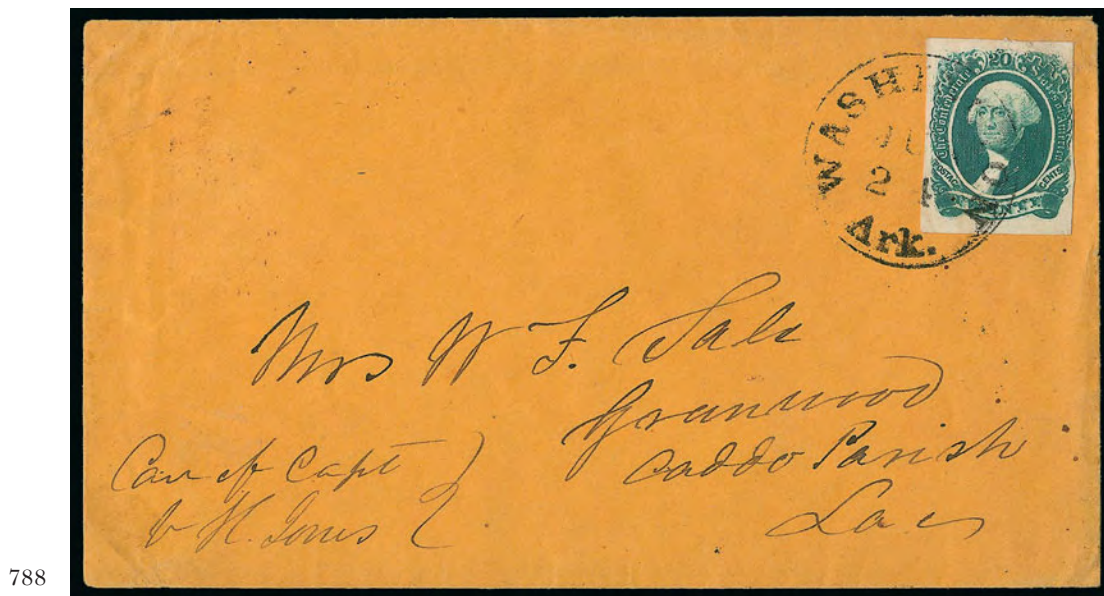 WASHI
JU
2
Ark.
20
The Confederate States of America
POSTAGE CENTS
TWENTY
Mrs W F. Sale
Greenwood
Caddo Parish
La
Care of Capt
H. Jones
788